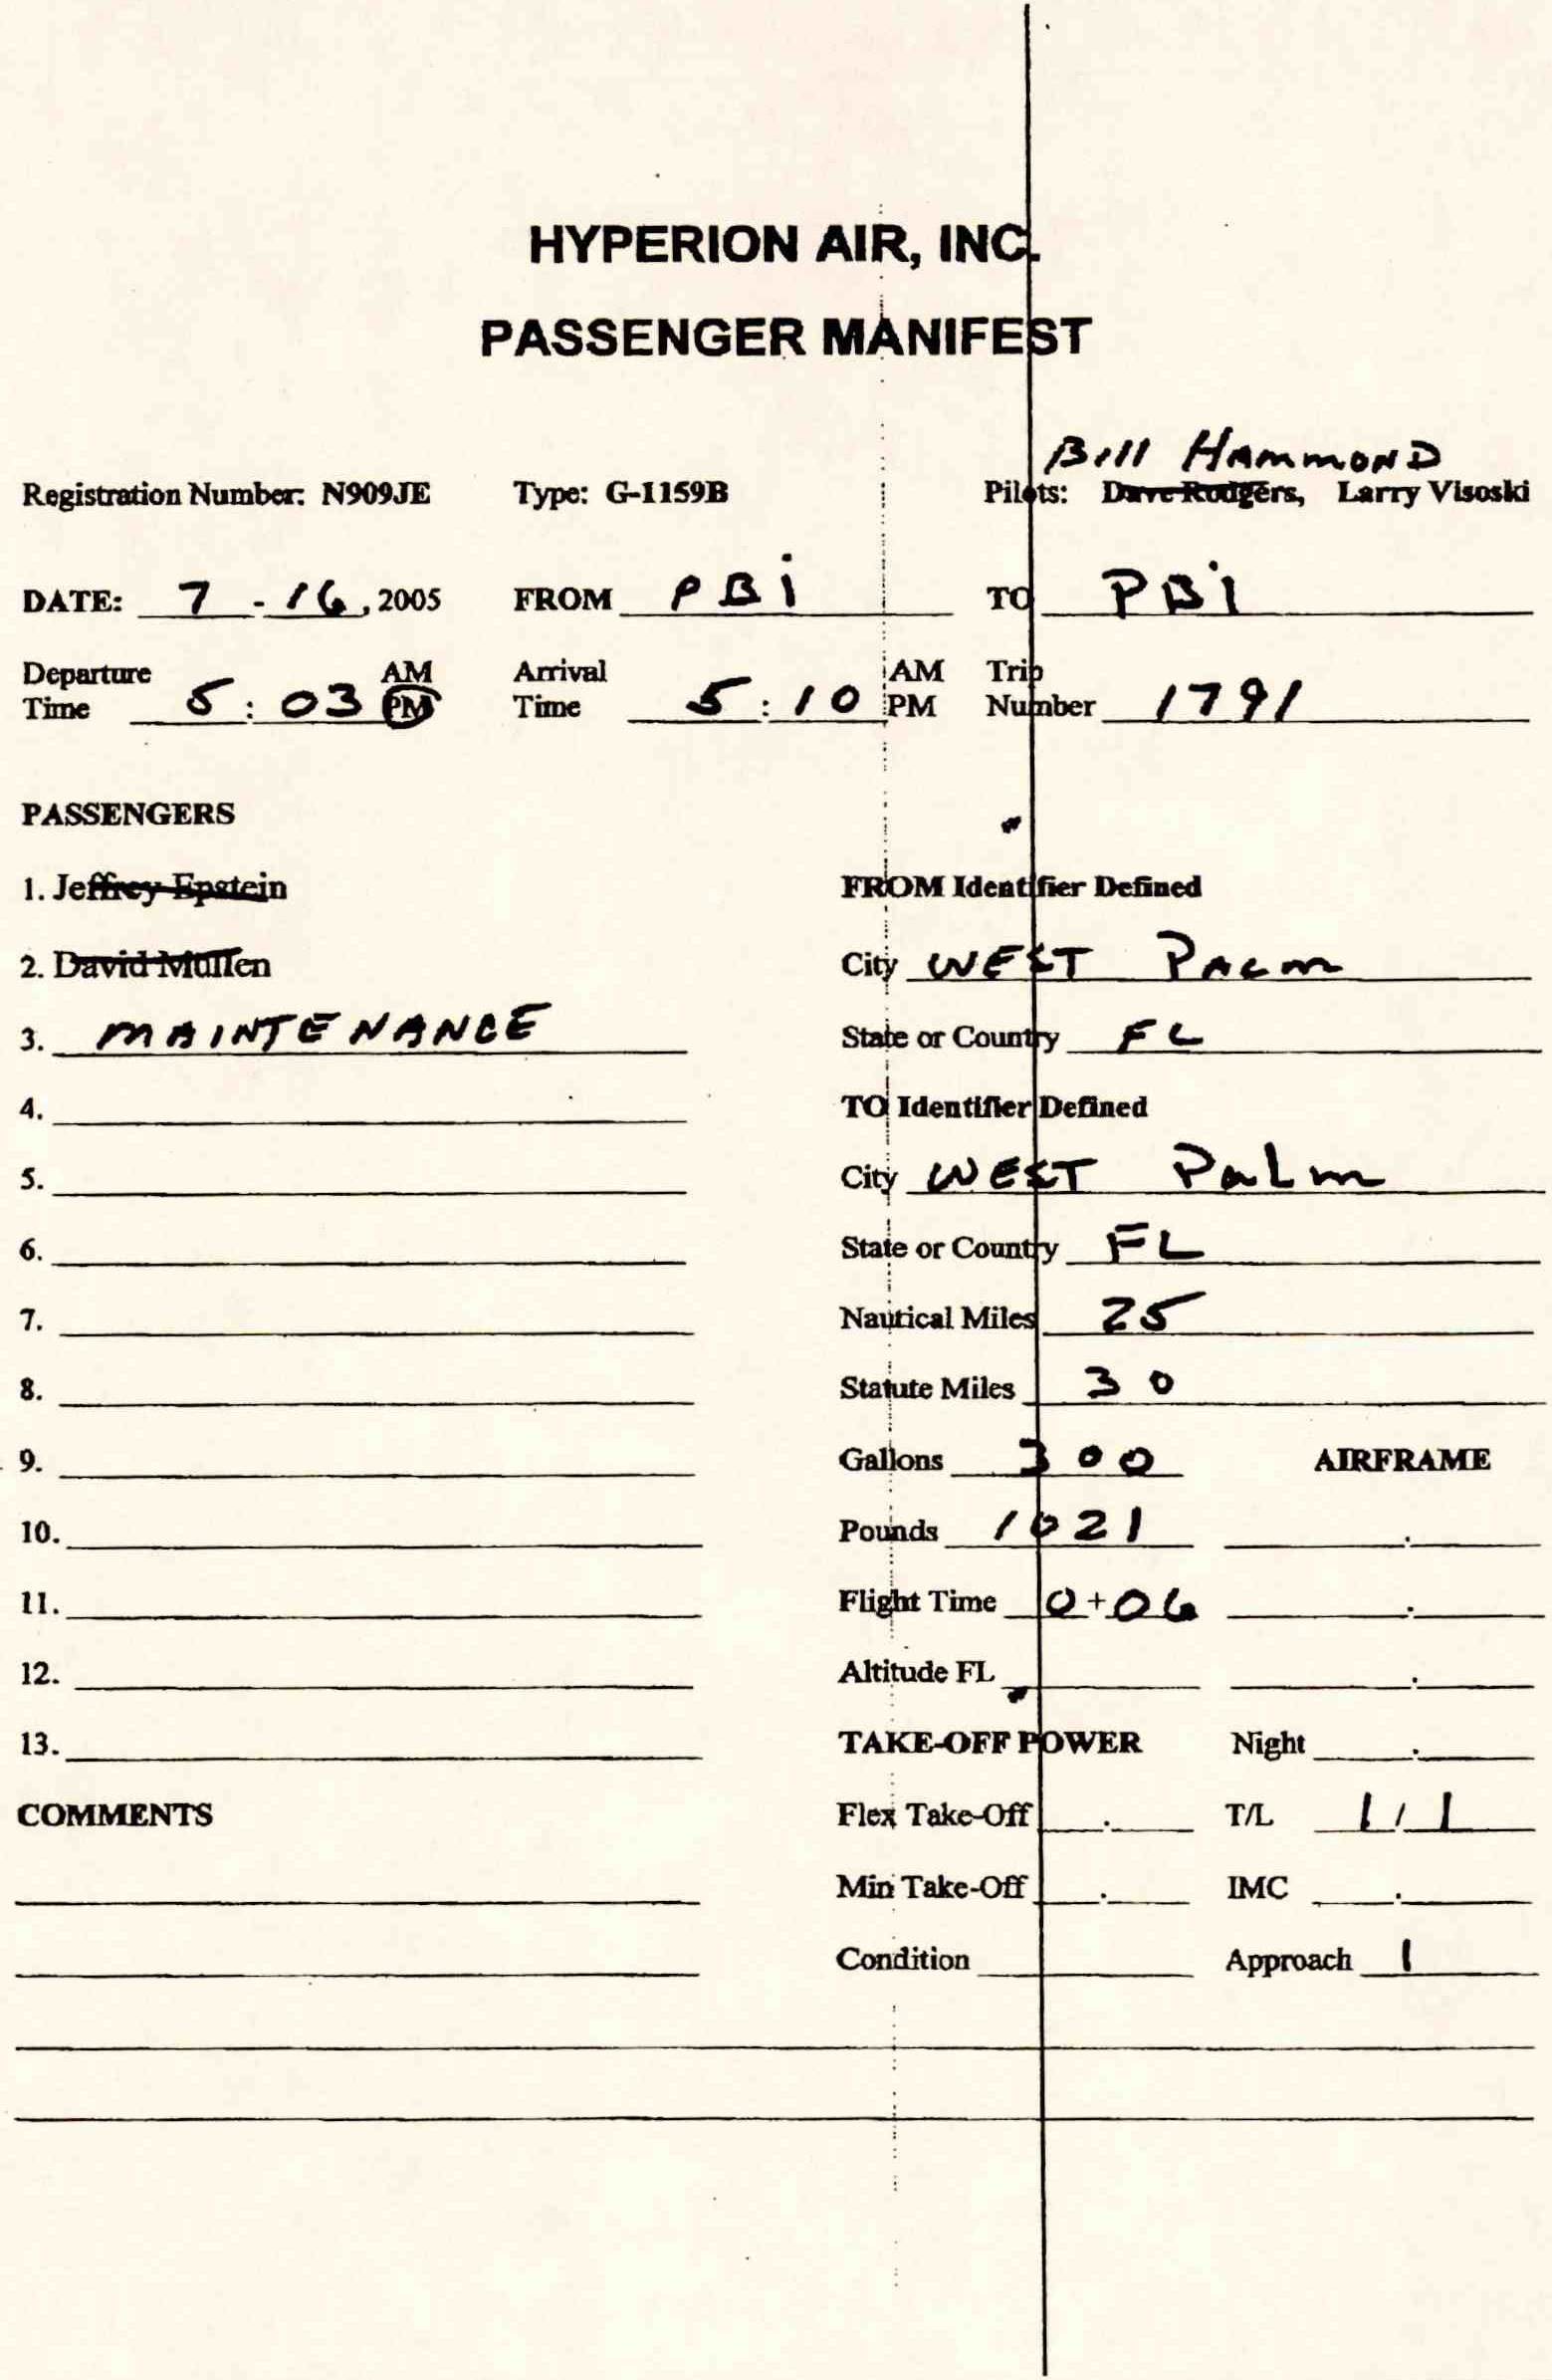 HYPERION AIR, INC.
PASSENGER MANIFEST
Bill HAMMOND
Registration Number: N909JE Type: G-1159B Pilots: Dave Rodgers, Larry Visoski
DATE: 7 - 16, 2005 FROM PBi TO PBi
Departure Time 5:03 AM PM Arrival Time 5:10 AM PM Trip Number 1791
PASSENGERS
1. Jeffrey Epstein FROM Identifier Defined
2. David Mullen City WEST PALM
3. MAINTENANCE State or Country FL
4. TO Identifier Defined
5. City WEST PaLm
6. State or Country FL
7. Nautical Miles 25
8. Statute Miles 30
9. Gallons 300 AIRFRAME
10. Pounds 1021 .
11. Flight Time 0+06 .
12. Altitude FL .
13. TAKE-OFF POWER Night .
COMMENTS Flex Take-Off . T/L 1/1
Min Take-Off . IMC .
Condition Approach 1